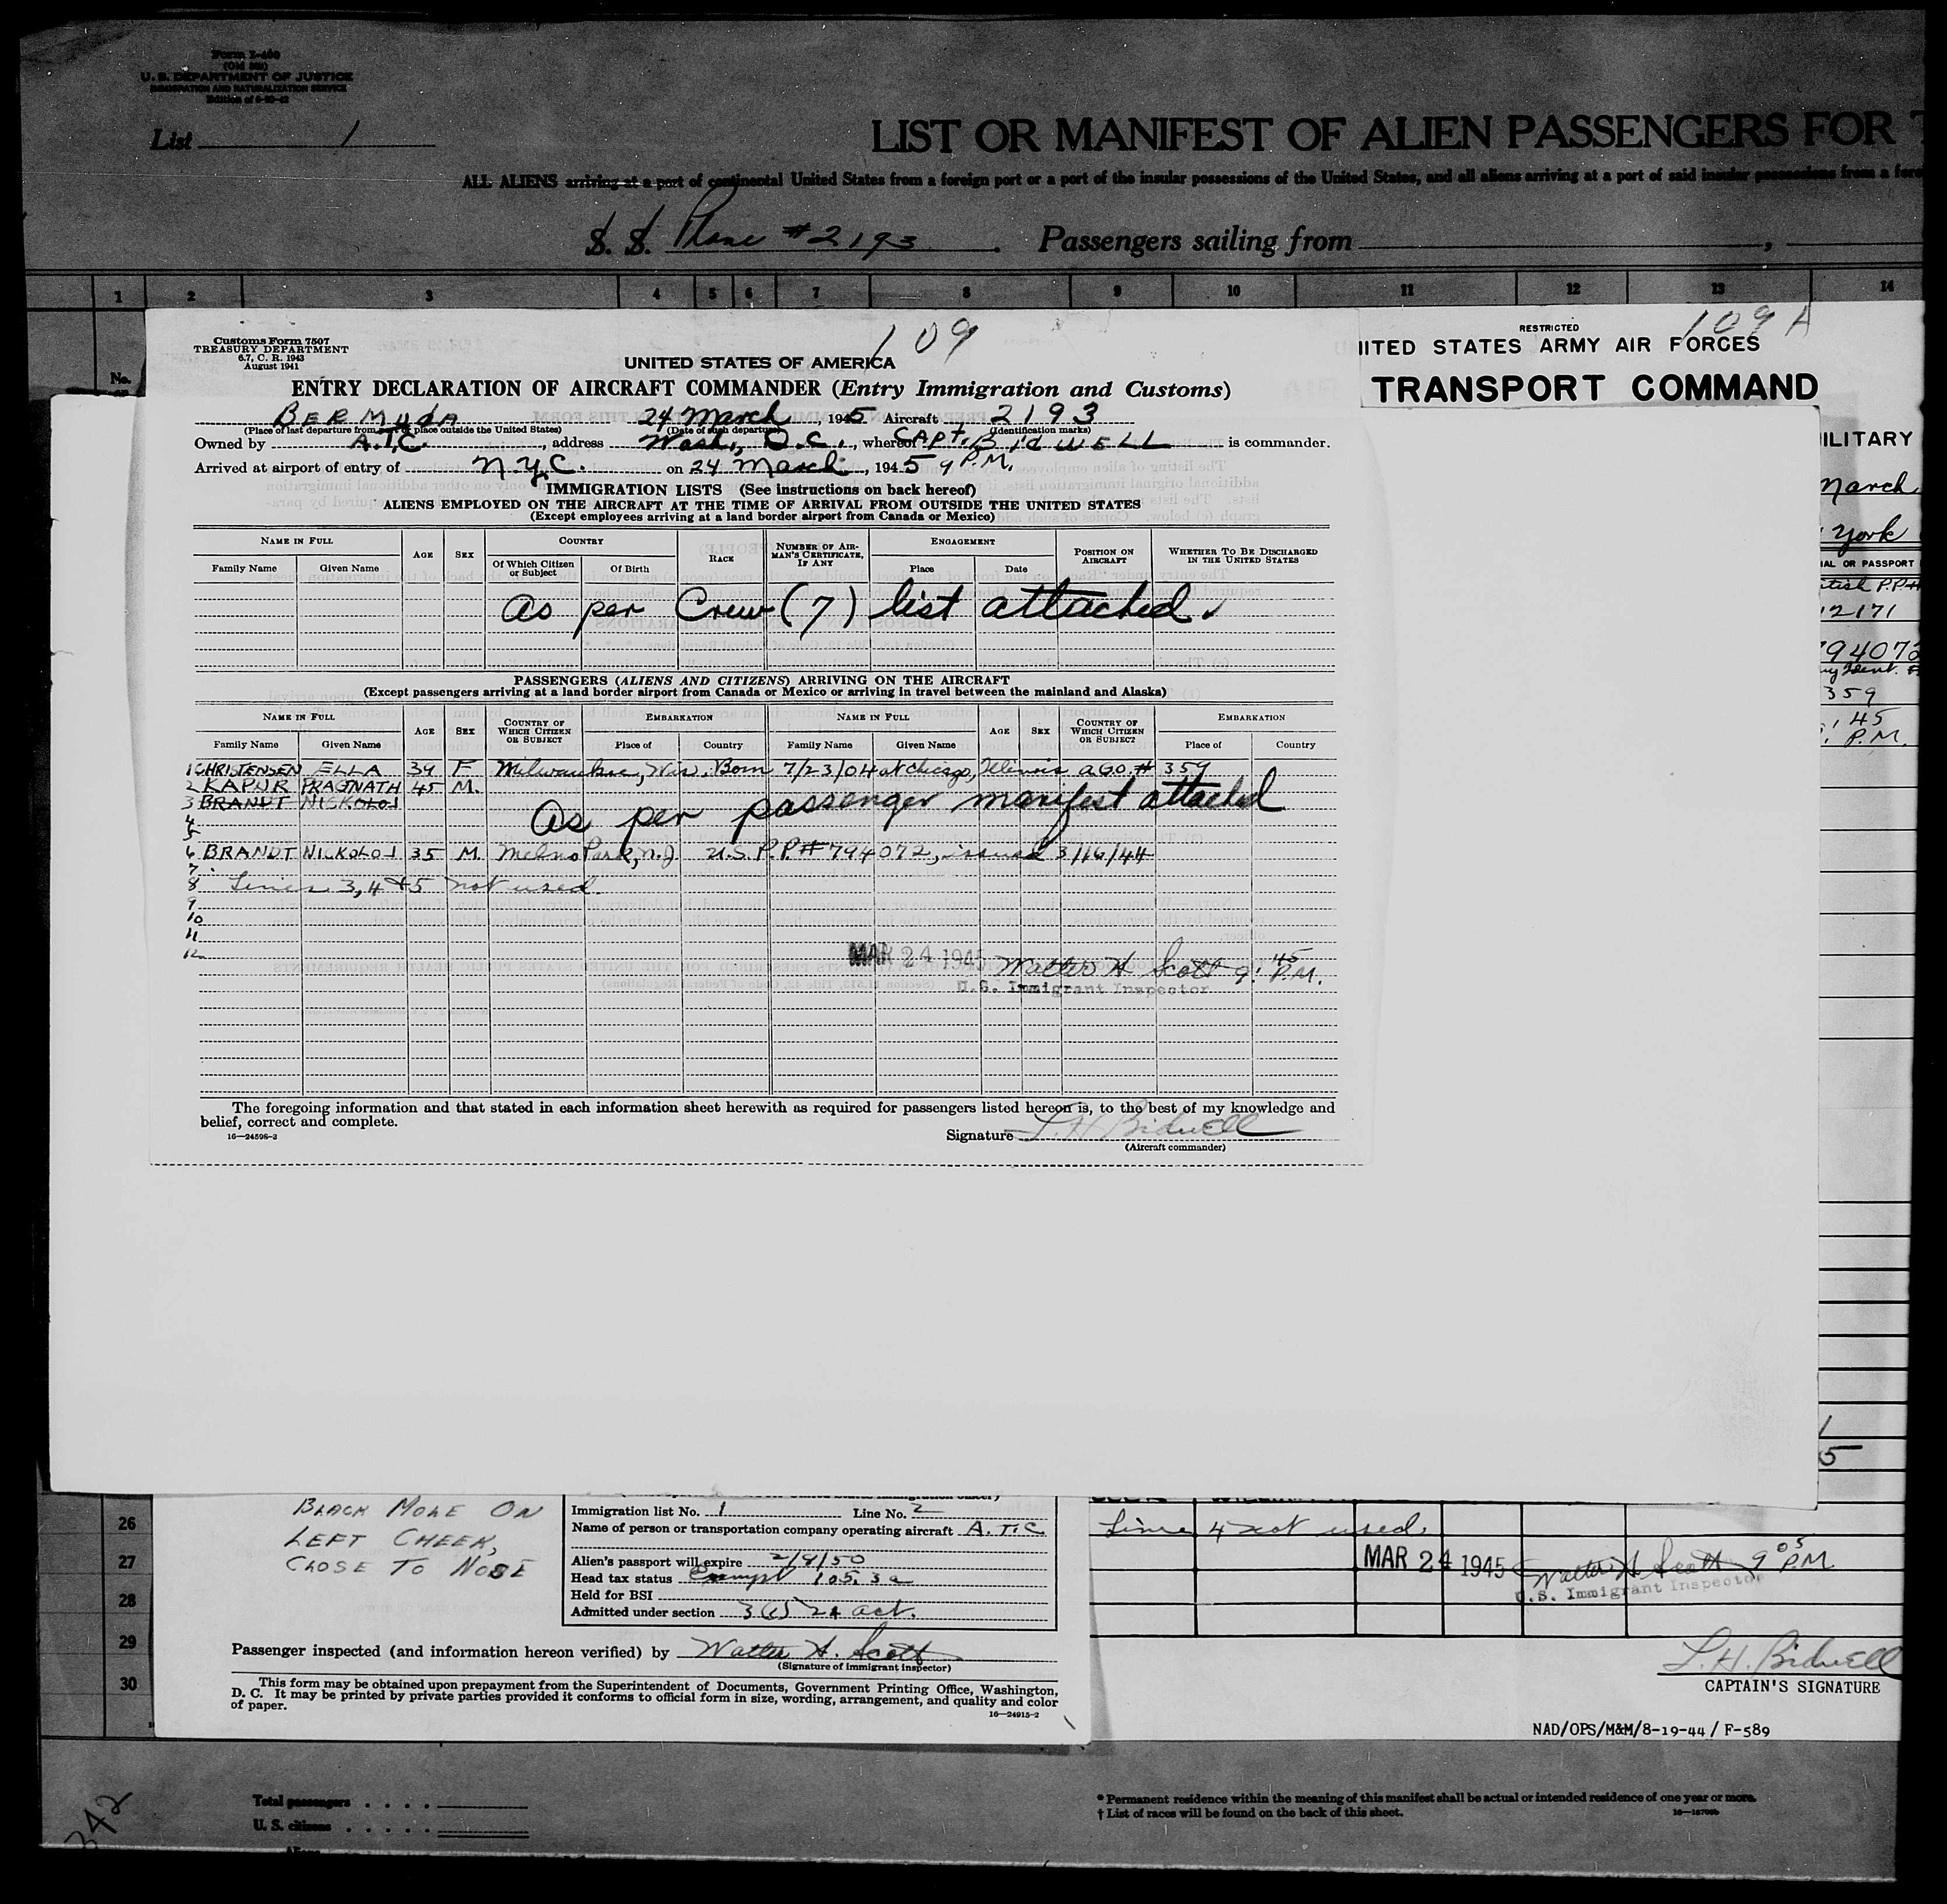 Form I-400
(Old 500)
U. S. DEPARTMENT OF JUSTICE
IMMIGRATION AND NATURALIZATION SERVICE
List 1
LIST OR MANIFEST OF ALIEN PASSENGERS FOR
ALL ALIENS arriving at a port of continental United States from a foreign port or a port of the insular possessions of the United States, and all aliens arriving at a port of said insular possessions from a
S. S. Plane #2193. Passengers sailing from
1 2 3 4 5 6 7 8 9 10 11 12 13 14
No.
Customs Form 7507
TREASURY DEPARTMENT
6.7, C. R. 1943
August 1941
109
UNITED STATES OF AMERICA
ENTRY DECLARATION OF AIRCRAFT COMMANDER (Entry Immigration and Customs)
BERMUDA 24 March, 1945 Aircraft 2193
(Place of last departure from port or place outside the United States) (Date of such departure) (Identification marks)
Owned by A.T.C., address Wash, D.C., whereof CAPT. BIDWELL is commander.
Arrived at airport of entry of N.Y.C. on 24 March, 1945 9 P.M.
IMMIGRATION LISTS (See instructions on back hereof)
ALIENS EMPLOYED ON THE AIRCRAFT AT THE TIME OF ARRIVAL FROM OUTSIDE THE UNITED STATES
(Except employees arriving at a land border airport from Canada or Mexico)
NAME IN FULL AGE SEX COUNTRY RACE NUMBER OF AIRMAN'S CERTIFICATE, IF ANY ENGAGEMENT POSITION ON AIRCRAFT WHETHER TO BE DISCHARGED IN THE UNITED STATES
Family Name Given Name Of Which Citizen or Subject Of Birth Place Date
As per Crew (7) list attached.
PASSENGERS (ALIENS AND CITIZENS) ARRIVING ON THE AIRCRAFT
(Except passengers arriving at a land border airport from Canada or Mexico or arriving in travel between the mainland and Alaska)
NAME IN FULL AGE SEX COUNTRY OF WHICH CITIZEN OR SUBJECT EMBARKATION NAME IN FULL AGE SEX COUNTRY OF WHICH CITIZEN OR SUBJECT EMBARKATION
Family Name Given Name Place of Country Family Name Given Name Place of Country
1 CHRISTENSEN ELLA 39 F Milwaukee, Wis. Born 7/23/04 at Chicago, Illinois A.G.O. # 359
2 KAPUR PRAGNATH 45 M.
3 BRANDT NICKOLOI
As per passenger manifest attached
4
5
6 BRANDT NICKOLOI 35 M. Melno Park, N.J. U.S. P.P. # 794072, issued 3/16/44
7
8 Lines 3, 4 + 5 not used.
9
10
11
12
MAR 24 1945 Walter H Scott 9:45 P.M.
U.S. Immigrant Inspector
The foregoing information and that stated in each information sheet herewith as required for passengers listed hereon is, to the best of my knowledge and
belief, correct and complete.
16—24598-2
Signature L. H. Bidwell
(Aircraft commander)
RESTRICTED
109 A
UNITED STATES ARMY AIR FORCES
TRANSPORT COMMAND
ILITARY
March
York
IAL OR PASSPORT
itish P.P.#
12171
794072
359
45
P.M.
5
26
27
28
29
30
BLACK MOLE ON
LEFT CHEEK,
CLOSE TO NOSE
Immigration list No. 1 Line No. 2
Name of person or transportation company operating aircraft A.T.C.
Alien's passport will expire 2/8/50
Head tax status Exempt 105.3a
Held for BSI
Admitted under section 3(6) 24 act.
Passenger inspected (and information hereon verified) by Walter H. Scott
(Signature of immigrant inspector)
This form may be obtained upon prepayment from the Superintendent of Documents, Government Printing Office, Washington,
D. C. It may be printed by private parties provided it conforms to official form in size, wording, arrangement, and quality and color
of paper.
16—24915-2
Line 4 not used.
MAR 24 1945 Walter H Scott 9:05 P.M
U.S. Immigrant Inspector
L. H. Bidwell
CAPTAIN'S SIGNATURE
NAD/OPS/M&M/8-19-44 / F-589
342
Total passengers
U. S. citizens
* Permanent residence within the meaning of this manifest shall be actual or intended residence of one year or more.
† List of races will be found on the back of this sheet.